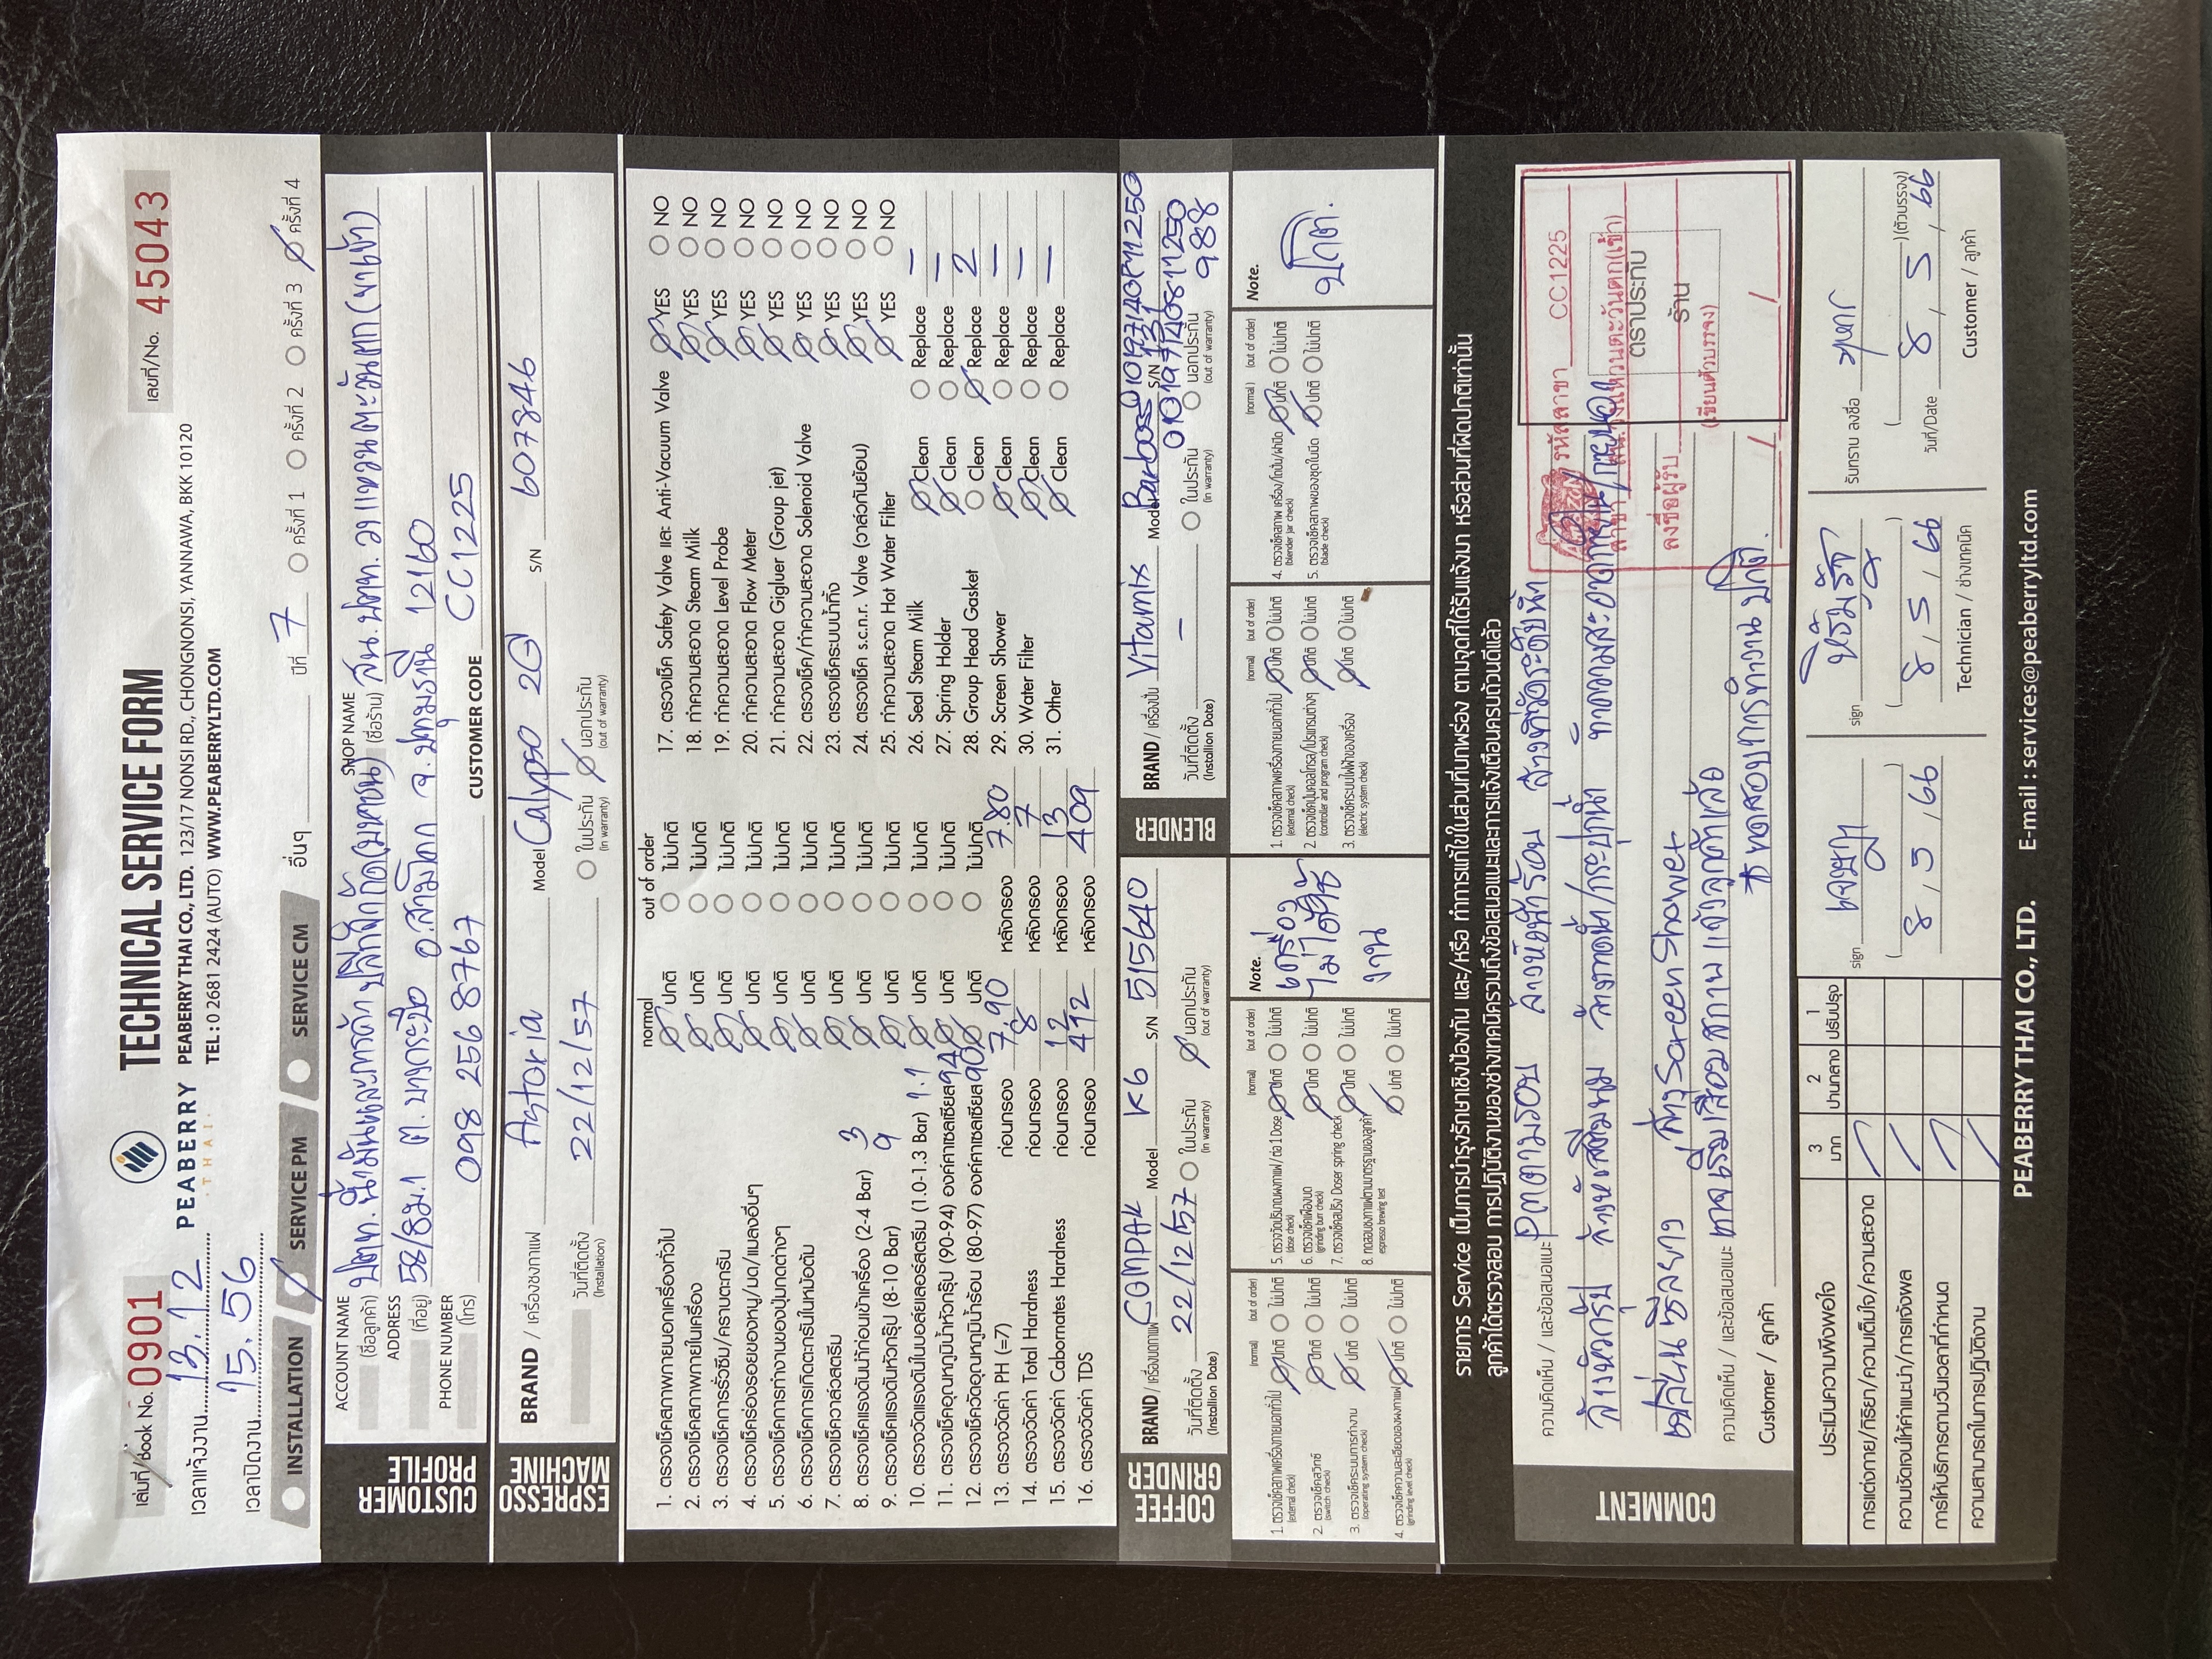 เล่มที่/Book No. 0901
TECHNICAL SERVICE FORM
เลขที่/No. 45043
เวลาแจ้งงาน 13.12
PEABERRY THAI
PEABERRY THAI CO., LTD. 123/17 NONSI RD., CHONGNONSI, YANNAWA, BKK 10120
TEL : 0 2681 2424 (AUTO) WWW.PEABERRYLTD.COM
เวลาปิดงาน 15.56
INSTALLATION SERVICE PM SERVICE CM อื่นๆ ปีที่ 7 ครั้งที่ 1 ครั้งที่ 2 ครั้งที่ 3 ครั้งที่ 4
CUSTOMER PROFILE
ACCOUNT NAME (ชื่อลูกค้า) ปตท. น้ำมันและการค้าปลีกจำกัด(มหาชน) SHOP NAME (ชื่อร้าน) สน. ปตท. วงแหวนตะวันตก (ขาเข้า)
ADDRESS (ที่อยู่) 58/8 ม.1 ต. บางกระบือ อ.สามโคก จ. ปทุมธานี 12160
PHONE NUMBER (โทร) 098 256 8767 CUSTOMER CODE CC1225
ESPRESSO MACHINE
BRAND / เครื่องชงกาแฟ Astoria Model Calypso 2G S/N 607846
วันที่ติดตั้ง (Installation) 22/12/57 ในประกัน (in warranty) นอกประกัน (out of warranty)
normal out of order
1. ตรวจเช็คสภาพภายนอกเครื่องทั่วไป ปกติ ไม่ปกติ
2. ตรวจเช็คสภาพภายในเครื่อง ปกติ ไม่ปกติ
3. ตรวจเช็คการรั่วซึม/คราบตะกรัน ปกติ ไม่ปกติ
4. ตรวจเช็คร่องรอยของหนู/มด/แมลงอื่นๆ ปกติ ไม่ปกติ
5. ตรวจเช็คการทำงานของปุ่มกดต่างๆ ปกติ ไม่ปกติ
6. ตรวจเช็คการเกิดตะกรันในหม้อต้ม ปกติ ไม่ปกติ
7. ตรวจเช็ควาล์วสตรีม ปกติ ไม่ปกติ
8. ตรวจเช็คแรงดันน้ำก่อนเข้าเครื่อง (2-4 Bar) 3 ปกติ ไม่ปกติ
9. ตรวจเช็คแรงดันหัวกรุ๊ป (8-10 Bar) 9 ปกติ ไม่ปกติ
10. ตรวจวัดแรงดันในบอล์ยเลอร์สตรีม (1.0-1.3 Bar) 1.1 ปกติ ไม่ปกติ
11. ตรวจเช็คอุณหภูมิน้ำหัวกรุ๊ป (90-94) องค์ศาเซลเซียส 94 ปกติ ไม่ปกติ
12. ตรวจเช็ควัดอุณหภูมิน้ำร้อน (80-97) องค์ศาเซลเซียส 90 ปกติ ไม่ปกติ
13. ตรวจวัดค่า PH (=7) ก่อนกรอง 7.90 หลังกรอง 7.80
14. ตรวจวัดค่า Total Hardness ก่อนกรอง 8 หลังกรอง 7
15. ตรวจวัดค่า Cabornates Hardness ก่อนกรอง 12 หลังกรอง 13
16. ตรวจวัดค่า TDS ก่อนกรอง 412 หลังกรอง 409
17. ตรวจเช็ค Safety Valve และ Anti-Vacuum Valve YES NO
18. ทำความสะอาด Steam Milk YES NO
19. ทำความสะอาด Level Probe YES NO
20. ทำความสะอาด Flow Meter YES NO
21. ทำความสะอาด Gigluer (Group jet) YES NO
22. ตรวจเช็ค/ทำความสะอาด Solenoid Valve YES NO
23. ตรวจเช็คระบบน้ำทิ้ง YES NO
24. ตรวจเช็ค s.c.n.r. Valve (วาล์วกันย้อน) YES NO
25. ทำความสะอาด Hot Water Filter YES NO
26. Seal Steam Milk Clean Replace –
27. Spring Holder Clean Replace –
28. Group Head Gasket Clean Replace 2
29. Screen Shower Clean Replace –
30. Water Filter Clean Replace –
31. Other Clean Replace –
COFFEE GRINDER
BRAND / เครื่องบดกาแฟ COMPAK Model K6 S/N 515640
วันที่ติดตั้ง (Installion Date) 22/12/57 ในประกัน (in warranty) นอกประกัน (out of warranty)
BLENDER
BRAND / เครื่องปั่น Vitamix Model Barboss S/N 010197140811250
131
010197140811250
988
วันที่ติดตั้ง (Installion Date) – ในประกัน (in warranty) นอกประกัน (out of warranty)
(normal) (out of order)
1. ตรวจเช็คสภาพเครื่องภายนอกทั่วไป (external check) ปกติ ไม่ปกติ
2. ตรวจเช็คสวิทซ์ (switch check) ปกติ ไม่ปกติ
3. ตรวจเช็คระบบการทำงาน (operating system check) ปกติ ไม่ปกติ
4. ตรวจเช็คความละเอียดของผงกาแฟ (grinding level check) ปกติ ไม่ปกติ
(normal) (out of order)
5. ตรวจวัดปริมาณผงกาแฟ/ต่อ 1 Dose (dose check) ปกติ ไม่ปกติ
6. ตรวจเช็คเฟืองบด (grinding burr check) ปกติ ไม่ปกติ
7. ตรวจเช็คสปริง Doser spring check ปกติ ไม่ปกติ
8. ทดสอบชงกาแฟตามมาตรฐานของลูกค้า espresso brewing test ปกติ ไม่ปกติ
Note.
เครื่อง
ไม่ได้ใช้
งาน
(normal) (out of order)
1. ตรวจเช็คสภาพเครื่องภายนอกทั่วไป (external check) ปกติ ไม่ปกติ
2. ตรวจเช็คปุ่มคอลโทรล/โปรแกรมต่างๆ (controller and program check) ปกติ ไม่ปกติ
3. ตรวจเช็คระบบไฟฟ้าของเครื่อง (electric system check) ปกติ ไม่ปกติ
(normal ) (out of order)
4. ตรวจเช็คสภาพ เครื่อง/โถปั่น/ฝาปิด (blender jar check) ปกติ ไม่ปกติ
5. ตรวจเช็คสภาพของชุดใบมีด (blade check) ปกติ ไม่ปกติ
Note.
ปกติ.
รายการ Service เป็นการบำรุงรักษาเชิงป้องกัน และ/หรือ ทำการแก้ไขในส่วนที่บกพร่อง ตามจุดที่ได้รับแจ้งมา หรือส่วนที่ผิดปกติเท่านั้น
ลูกค้าได้ตรวจสอบ การปฏิบัติงานของช่างเทคนิครวมถึงข้อเสนอแนะและการแจ้งเตือนครบถ้วนดีแล้ว
COMMENT
ความคิดเห็น / และข้อเสนอแนะ PMตามรอบ ล้างหัวน้ำร้อน ล้างที่วัดระดับน้ำ
ล้างหัวกรุ๊ป ล้างหัวสตีมนม ล้างถาดน้ำ/กระปุกน้ำ ทำความสะอาดภายใน/ภายนอก
เปลี่ยนซีลยาง ล้าง Screen Shower
ความคิดเห็น / และข้อเสนอแนะ เกจเริ่มเสื่อมสภาพ แจ้งลูกค้าแล้ว
* ทดสอบการทำงาน ปกติ.
Customer / ลูกค้า
รหัสสาขา CC1225
สาขา สน.วงแหวนตะวันตก(เข้า)
ตราประทับ
ลงชื่อผู้รับ
ร้าน
(เขียนตัวบรรจง)
/ /
ประเมินความพึงพอใจ 3 มาก 2 ปานกลาง 1 ปรับปรุง
การแต่งกาย/กิริยา/ความเต็มใจ/ความสะอาด
ความชัดเจนให้คำแนะนำ/การแจ้งผล
การให้บริการตามวันเวลาที่กำหนด
ความสามารถในการปฏิบัติงาน
sign
8 / 5 / 66
sign
8 / 5 / 66
Technician / ช่างเทคนิค
รับทราบ ลงชื่อ
(ตัวบรรจง)
วันที่/Date 8 / 5 / 66
Customer / ลูกค้า
PEABERRY THAI CO., LTD. E-mail : services@peaberryltd.com